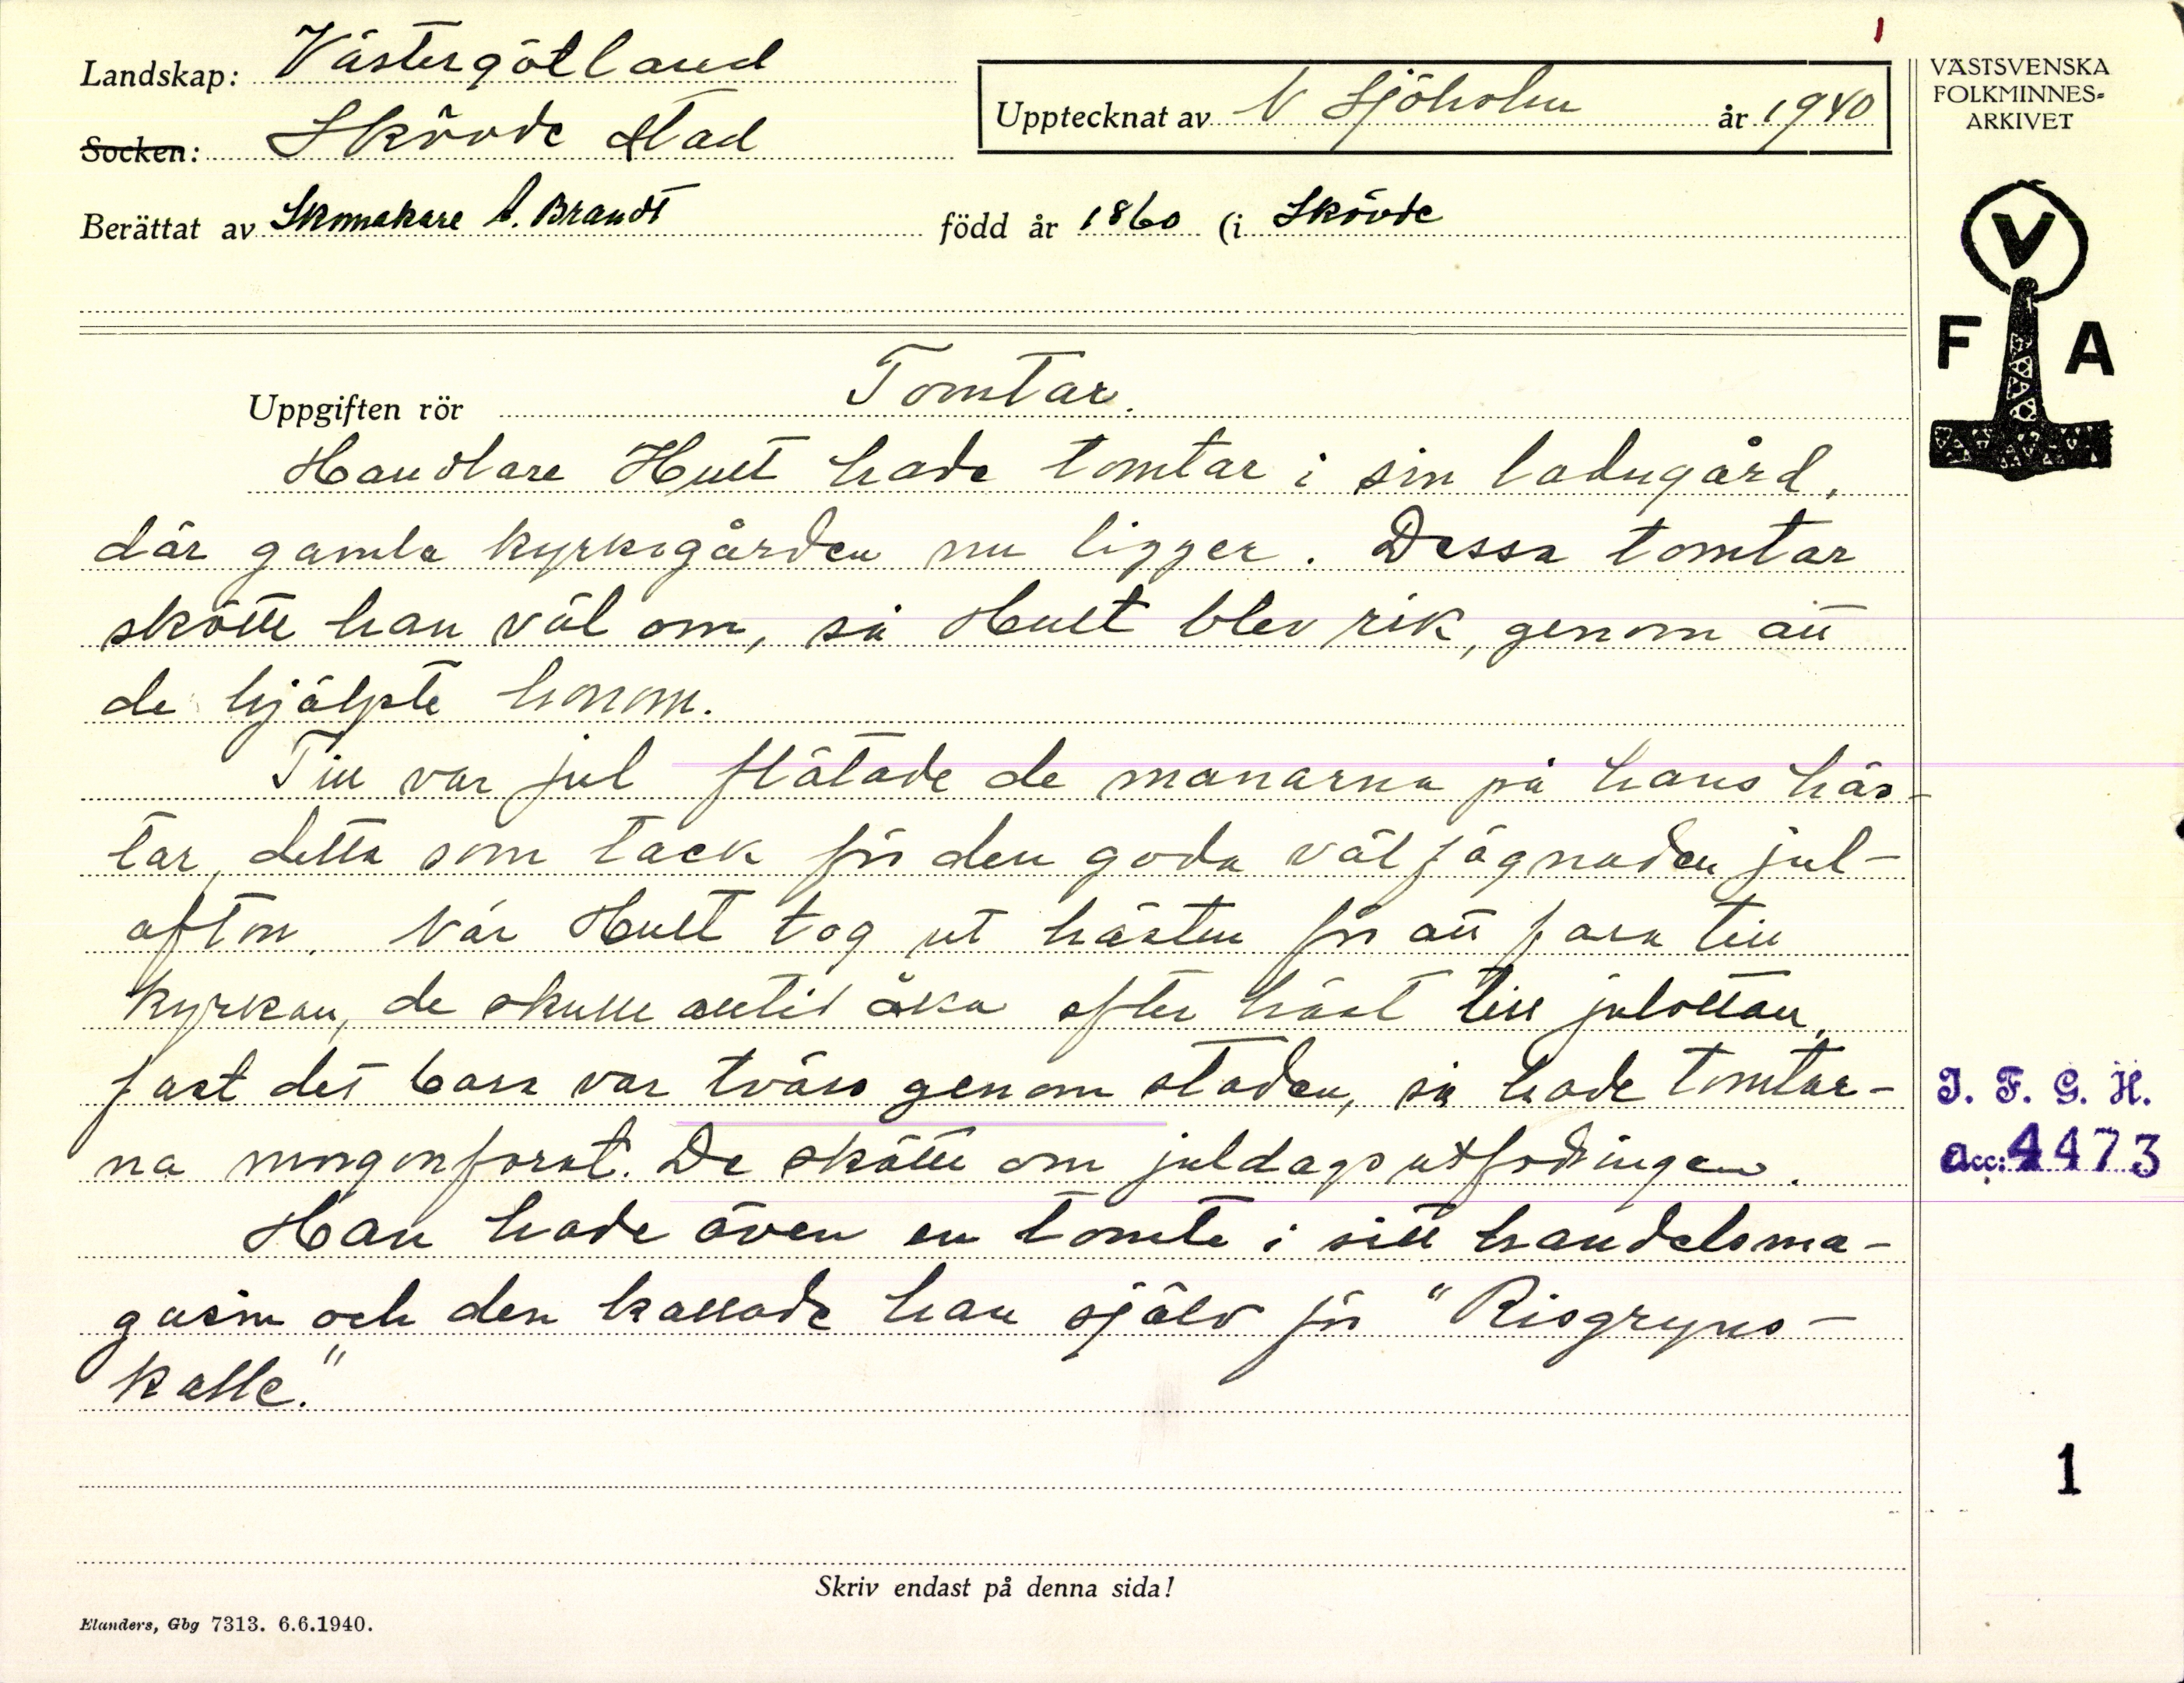 1
Landskap: Västergötland
Socken: Skövde Stad
Upptecknat av N Sjöholm år 1940
VÄSTSVENSKA
FOLKMINNES-
ARKIVET
Berättat av Skomakare A. Brandt född år 1860 (i Skövde
V
F A
Uppgiften rör Tomtar.
Handlare Hult hade tomtar i sin ladugård,
där gamla kyrkogården nu ligger. Dessa tomtar
skötte han väl om, så Hult blev rik, genom att
de hjälpte honom.
Till var jul flätade de manarna på hans häs-
tar, detta som tack för den goda välfägnaden jul-
afton. När Hult tog ut hästen för att fara till
kyrkan, de skulle alltid åka efter häst till julottan,
fast det bara var tvärs genom staden, så hade tomtar-
na morgonforat. De skötte om juldagsutfodringen.
Han hade även en tomte i sitt handelsma-
gasin och den kallade han själv för "Risgryns-
kalle."
I. F. G. H.
Acc: 4473
1
Skriv endast på denna sida!
Elanders, Gbg 7313. 6.6.1940.